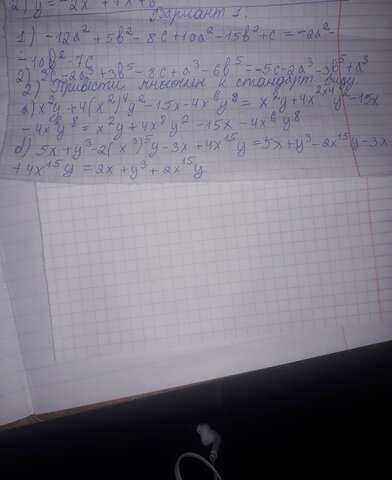 2) y = -2x + 7x + 6
Вариант 1.
1) -12a² + 5b² - 8c + 10a² - 15b² + c = -2a² -
-10b² - 7c
2) 3c - 2a³ + 3b⁵ - 8c + a³ - 6b⁵ = -5c - 2a³ - 3b⁵ + a³
3) Привести многочлен к стандарт виду
а) x²y + 4(x²)⁴y² - 15x - 4x⁶y⁸ = x²y + 4x²ˣ⁴y² - 15x
- 4x⁶y⁸ = x²y + 4x⁸y² - 15x - 4x⁶y⁸
б) 5x + y³ - 2(x³)⁵y - 3x + 4x¹⁵y = 5x + y³ - 2x¹⁵y - 3x
+ 4x¹⁵y = 2x + y³ + 2x¹⁵y